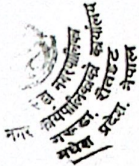 नगरपालिका
नगर कार्यपालिकाको कार्यालय
गरूडा, रौतहट
मधेश प्रदेश, नेपाल